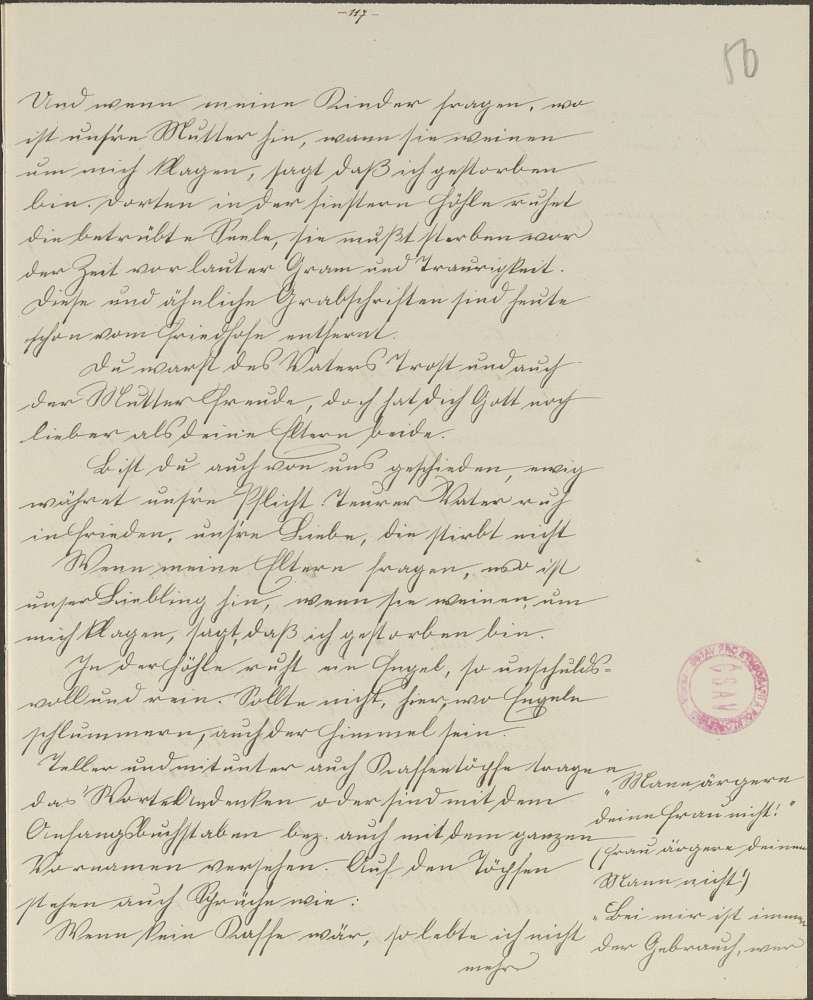 -117-
50
Und wenn meine Kinder fragen, wo
ist unsre Mutter hin, wann sie weinen
um mich klagen, sagt daß ich gestorben
bin. Dorten in der finstern Höhle ruhet
die betrübte Seele, sie mußt sterben vor
der Zeit vor lauter Gram und Traurigkeit.
Diese und ähnliche Grabschriften sind heute
schon vom Friedhofe entfernt.
Du warst des Vaters Trost und auch
der Mutter Freude, doch hat dich Gott noch
lieber als deine Eltern beide.
Bist du auch von uns geschieden, ewig
währet unsre Pflicht. Teurer Vater ruh
in Frieden, unsre Liebe, die stirbt nicht
Wenn meine Eltern fragen, wo ist
unser Liebling hin, wenn sie weinen, um
mich klagen, sagt, daß ich gestorben bin.
In der Höhle ruht ein Engel, so unschulds-
voll und rein. Sollte nicht, hier, wo Engeln
schlummern, auch der Himmel sein.
Teller und mitunter auch Kaffeetöpfe tragen
das Worte Andenken oder sind mit dem
Anfangsbuchstaben bez. auch mit dem ganzen
Vornamen versehen. Auf den Töpfen
stehen auch Sprüche wie:
Wenn kein Kaffe wär, so lebte ich nicht
mehr
"Mann ärgere
deine Frau nicht!"
(Frau ärgere deinen
Mann nicht!)
"Bei mir ist immer
der Gebrauch, wer
ČSAV